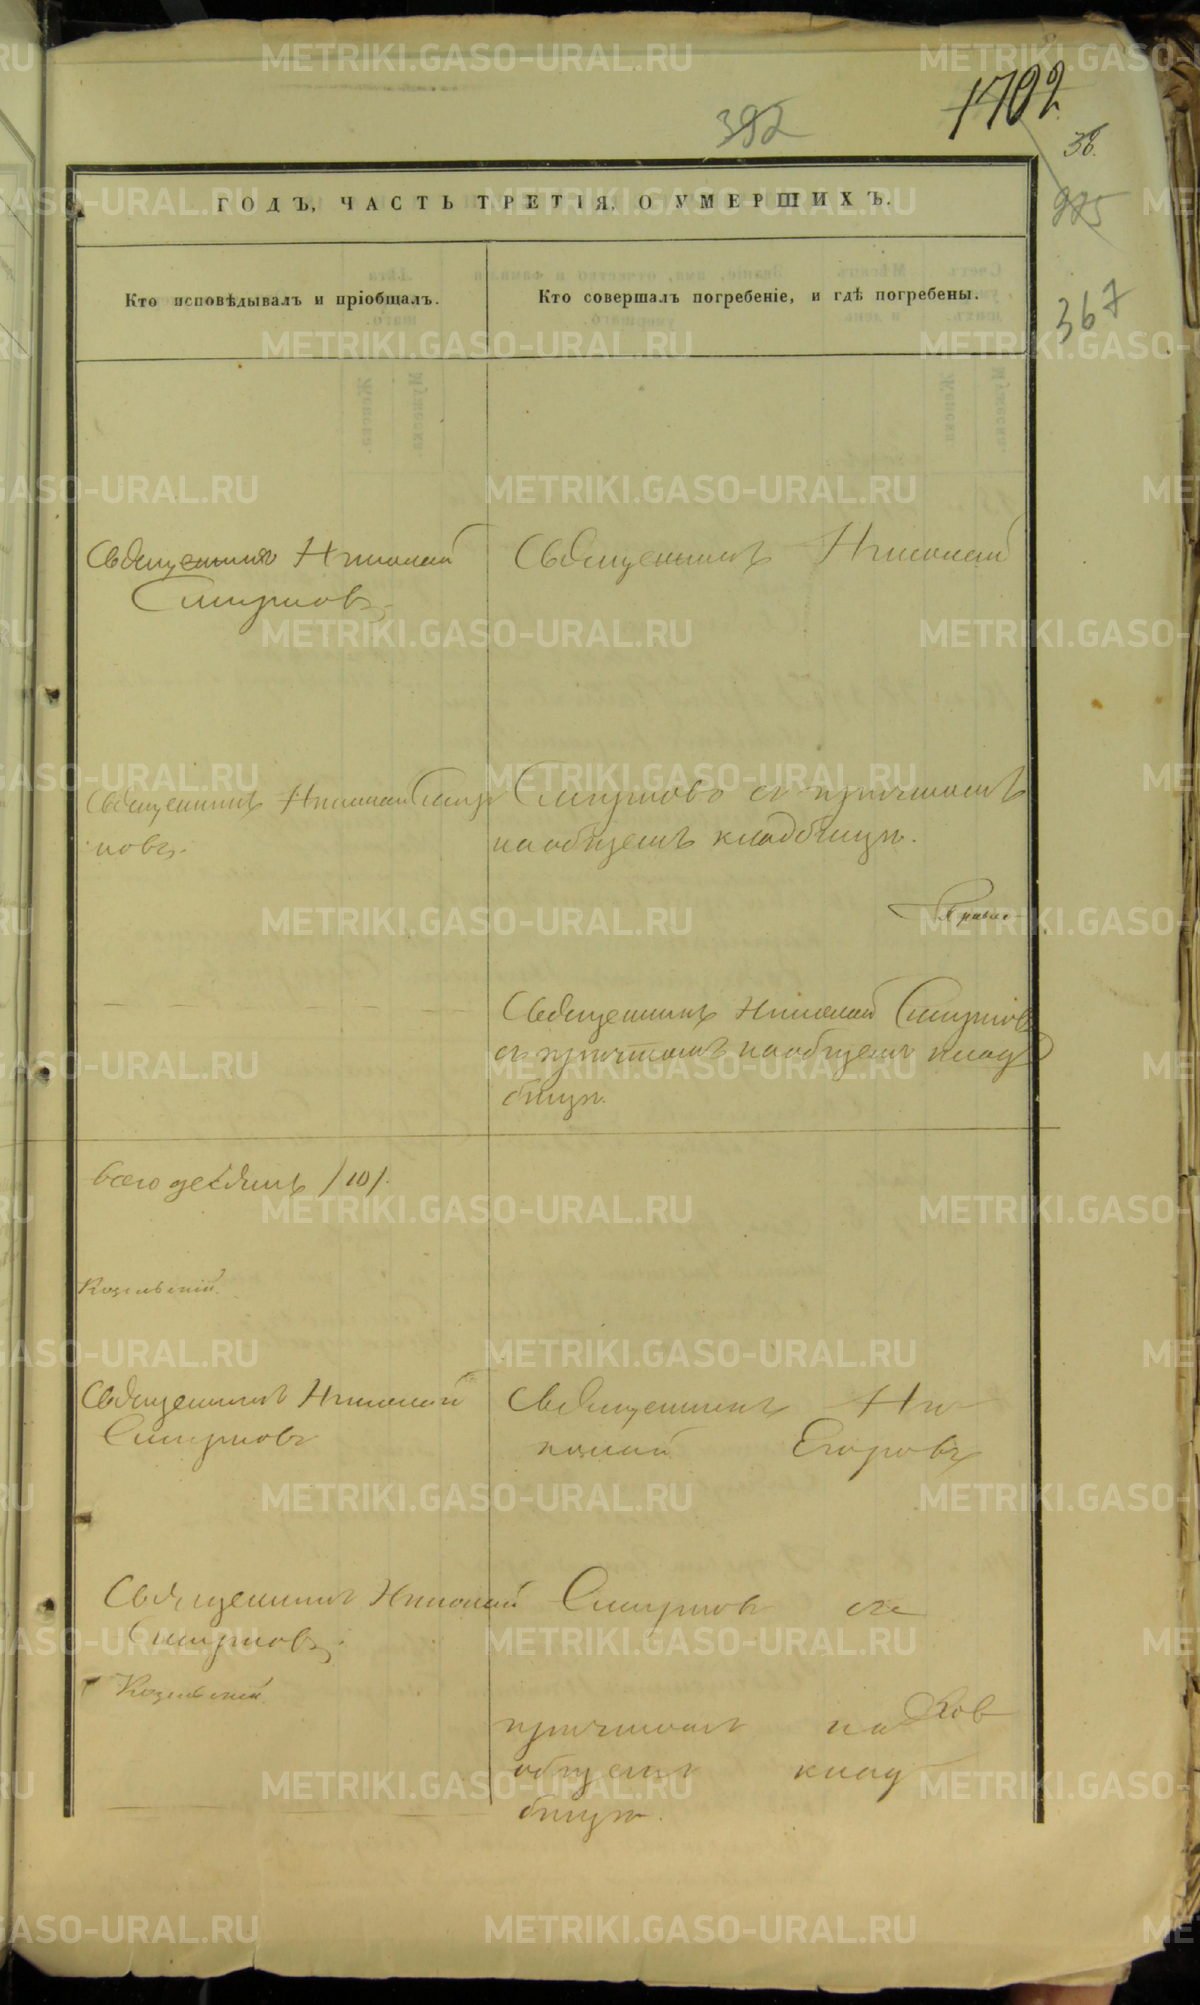 392
1702
38.
367
ГОДЪ, ЧАСТЬ ТРЕТІЯ, О УМЕРШИХЪ.
Кто исповѣдывалъ и пріобщалъ.
Кто совершалъ погребеніе, и гдѣ погребены.
Священникъ Николай
Смирновъ
Священникъ Николай
Священникъ Николай Смир
новъ.
Смирновъ съ причтомъ
на общемъ кладбищѣ.
Священникъ Николай Смирновъ
съ причтомъ на общемъ клад
бищѣ.
Всего десять /10/.
Священникъ Николай
Смирновъ
Священникъ Ни
колай Егоровъ
Священникъ Николай
Смирновъ.
Смирновъ съ
причтомъ на
общемъ клад
бищѣ.
METRIKI.GASO-URAL.RU